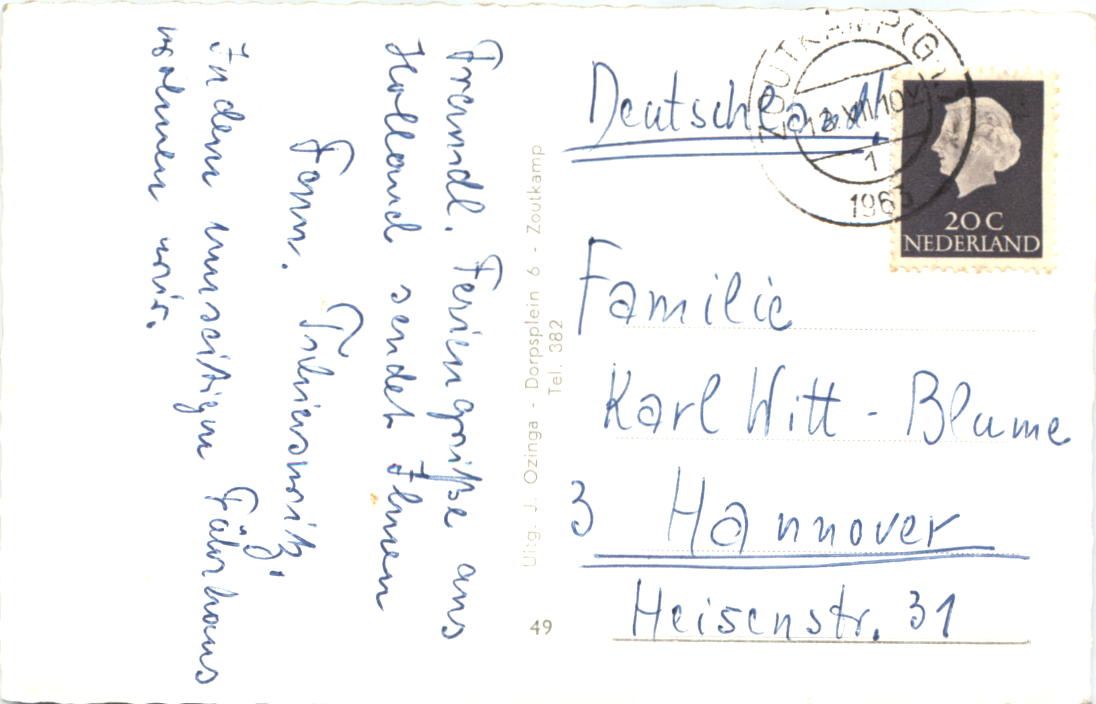 Freundl. Feriengrüße aus
Holland sendet Ihnen
Fam.
In dem umseitigen Fährhaus
wohnen wir.
Uitg. J. Ozinga - Dorpsplein 6 - Zoutkamp
Tel. 382
49
ZOUTKAMP (G
1963
20 C
NEDERLAND
Deutschland
Familie
Karl Witt-Blume
3 Hannover
Heisenstr. 31